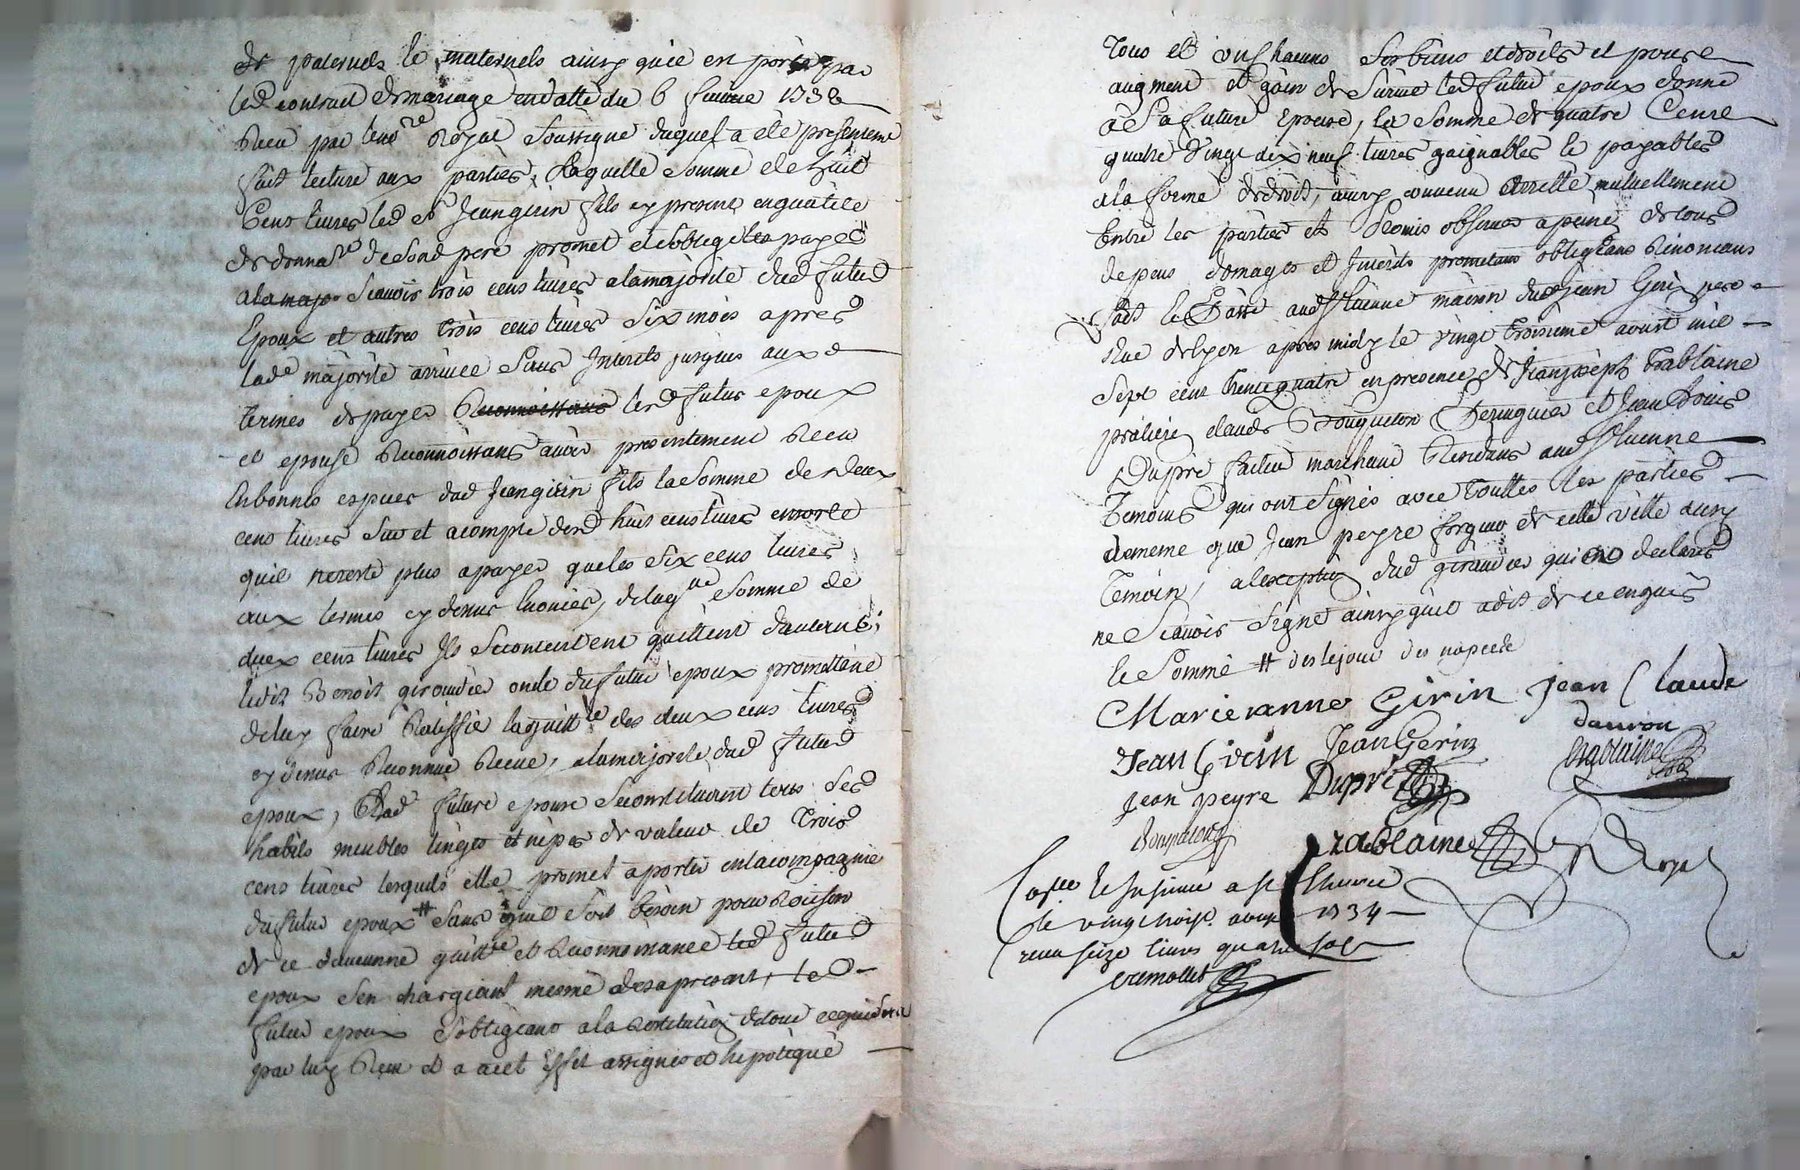 et paternels le maternels ainsy quil en porté par
led contract de mariage en datte du 6
Receu par le no.re Royal soussigné duquel a été presentem.t
fait lecture aux parties, Laquelle somme de huit
Cens livres led s.r Jean girin fils cy present en qualité
de donna.re de sond pere promet et soblige les payer
a la majo scavoir trois cens livres a la majorité dud futur
Epoux et autres trois cens livres six mois apres
lade majorité arrivée sans Interets jusques aux d
termes de payer Reconnoissans lesd futur epoux
et epouse Reconnoissans avoir presentement Receu
En bonnes especes dud Jean girin fils la somme de deux
cens livres sur et a compte desd huit cens livres en sorte
quil ne reste plus a payer que les six cens livres
aux termes cy devant Enoncés, de laq.lle somme de
deux cens livres Ils se contentent quittent dautant;
ledit Benoit giraudier oncle du futur epoux promettant
de luy faire Ratiffié la quitt.ce des deux cens livres
cy devant Reconnue Receue, a la majorité dud futur
epoux, Et lad future epouse se constituant tous ses
habits meubles linges et nipes de valeur de Trois
cens livres lesquels elle promet aporter en la compagnie
du futur epoux # sans quil soit besoin pour Raison
de ce d'aucunne quitt.ce et Reconnoissance led futur
epoux s'en chargeant mesme des a present, led
futur epoux s'obligeant a la restitution de tout ce qui sera
par luy Receu et a cet Effet assigne et hipotèque
Tous et uns chacuns ses biens et droits et pour
augment et gain de survie led futur epoux donne
a sa future Epouse, la somme de quatre Cent
quatre vingt dix neuf livres gaignables et payables
a la forme de droit, ainsy convenu arretté mutuellement
Entre les parties et Promis observer a peine de tous
depens domages et Interets promettans obligeans Renoncans
fait et Passé aud S.t Etienne maison dud Jean Girin pere
Rue de lyon apres midy le vingt troisieme aoust mil
sept cens trente quatre en presence de Jean joseph Trablaine
praticien claude perruquier et Jean Louis
Dupré facteur marchand Residans aud S.t Etienne
Temoins qui ont signés avec Touttes les parties
de meme que Jean peyre forgeur de cette ville aussy
Temoin, a lexception dud giraudier qui a declaré
ne scavoir signé ainsy quil a dit de ce enquis
et sommé # des le jour des nopces
Marie anne Girin Jean Claude
dauron
Jean Girin Jean Gerin trablaine
Jean peyre Dupré
trablaine
le Insinué a S.t Etienne
le vingt trois.e aoust 1734
receu seize livres quatre sols
cremollet